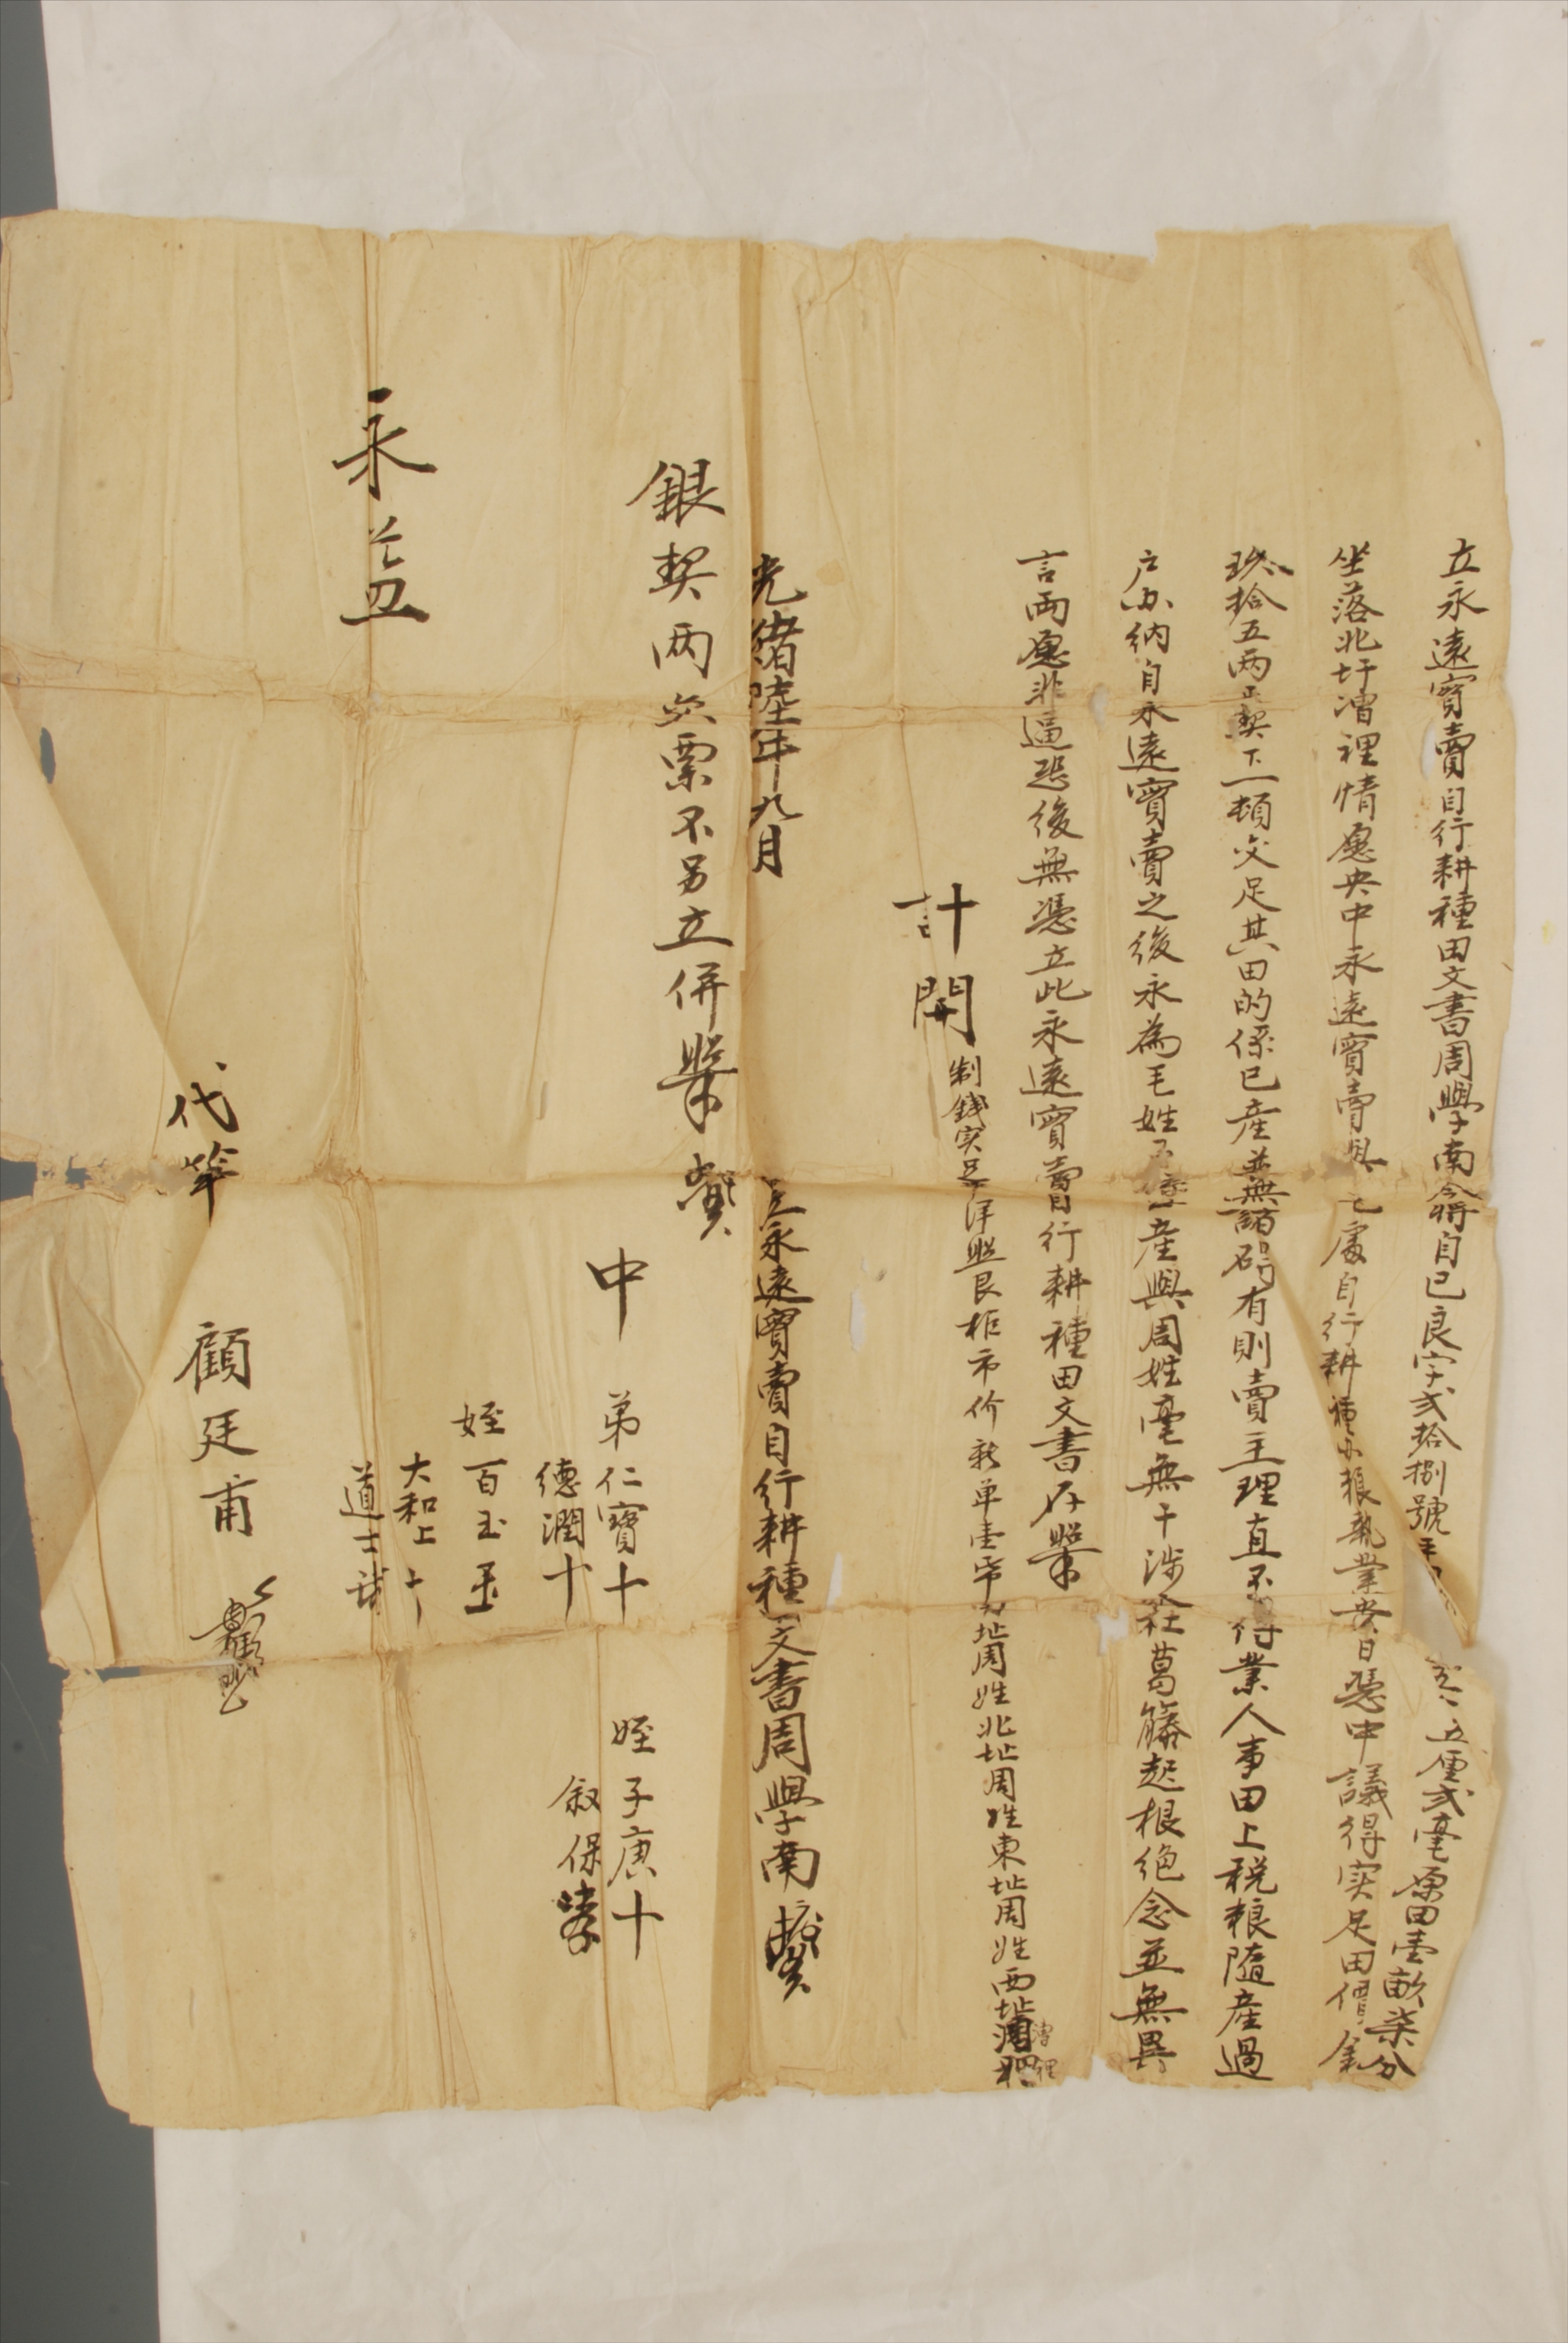 立永遠實賣自行耕種田文書周學南今將自己良字弍拾捌號平 五厘弍毫原田壹畝柒分
坐落北圩漕裡情愿央中永遠實賣與毛處自行耕種办粮執業當日憑中議得实足田價銀
玖拾五两正契下一頓交足其田的係已產並無諸碍有則賣主理直不得業人事田上税粮隨產過
户办纳自永遠實賣之後永為毛姓 產與周姓毫無干涉 葛籐起根绝念並無異
言両愿非逼恐後無憑立此永遠實賣自行耕種田文書存照
計開
制錢実足洋照艮柜市价新单壹帋 址周姓北址周姓東址周姓西址漕裡
光緒陸年九月
立永遠實賣自行耕種文書周學南
銀契两交票不另立併照
中
弟仁寶十
德潤十
姪百玉
大和上十
道士
姪子庚十
叙保
永益
代筆
顧廷甫